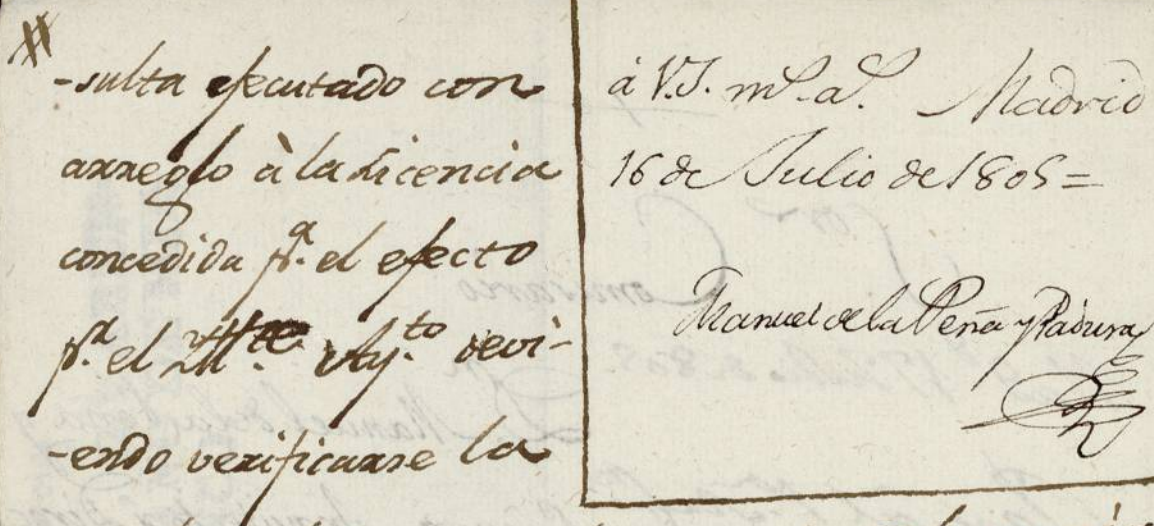 -sulta efecutado con
arreglo à la Licencia
concedida p.ª el efecto
p.ª el Ayᵗᵒ devi-
-endo verificarse la
à V.I. mˢ. aˢ. Madrid
16 de Julio de 1805=
Manuel de la Peña y Padura